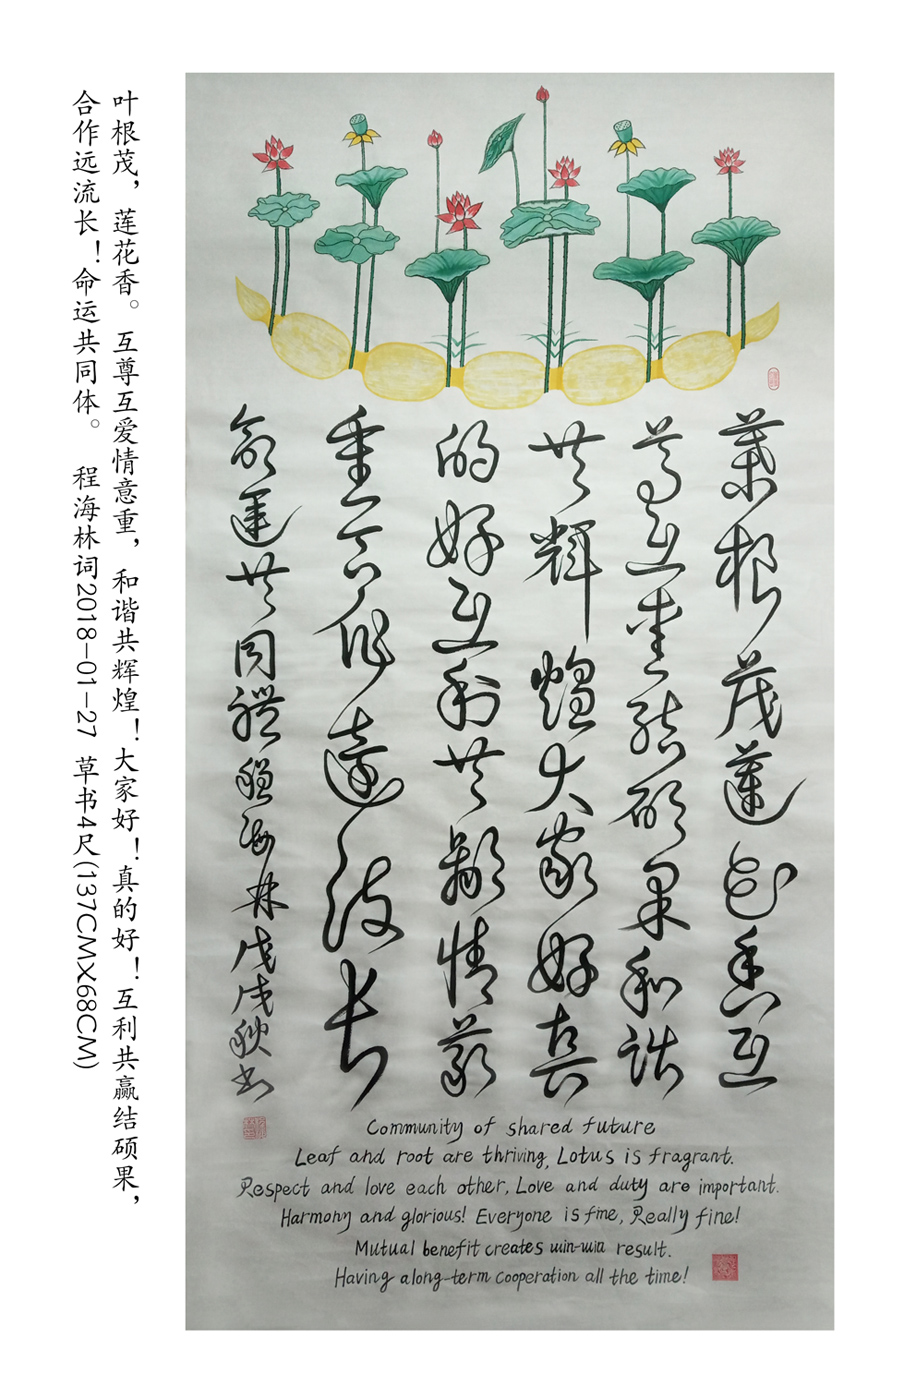 叶根茂，莲花香。互尊互爱情意重，和谐共辉煌！大家好！真的好！互利共赢结硕果，
合作远流长！命运共同体。 程海林词2018-01-27 草书4尺(137CMX68CM)
葉根茂蓮花香互
尊互愛結碩果和諧
共輝煌大家好真
的好互利共贏情義
重合作遠流长
命運共同體程海林戊戌秋书
Community of shared future
Leaf and root are thriving, Lotus is fragrant.
Respect and love each other, Love and duty are important.
Harmony and glorious! Everyone is fine, Really fine!
Mutual benefit creates win-win result.
Having along-term cooperation all the time!